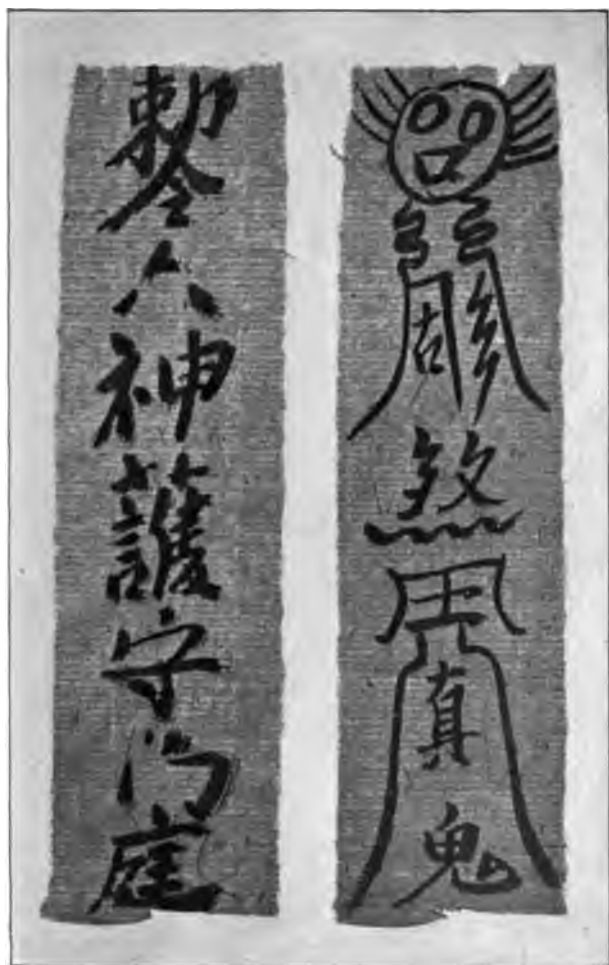 煞真鬼
勅令六神護守门庭